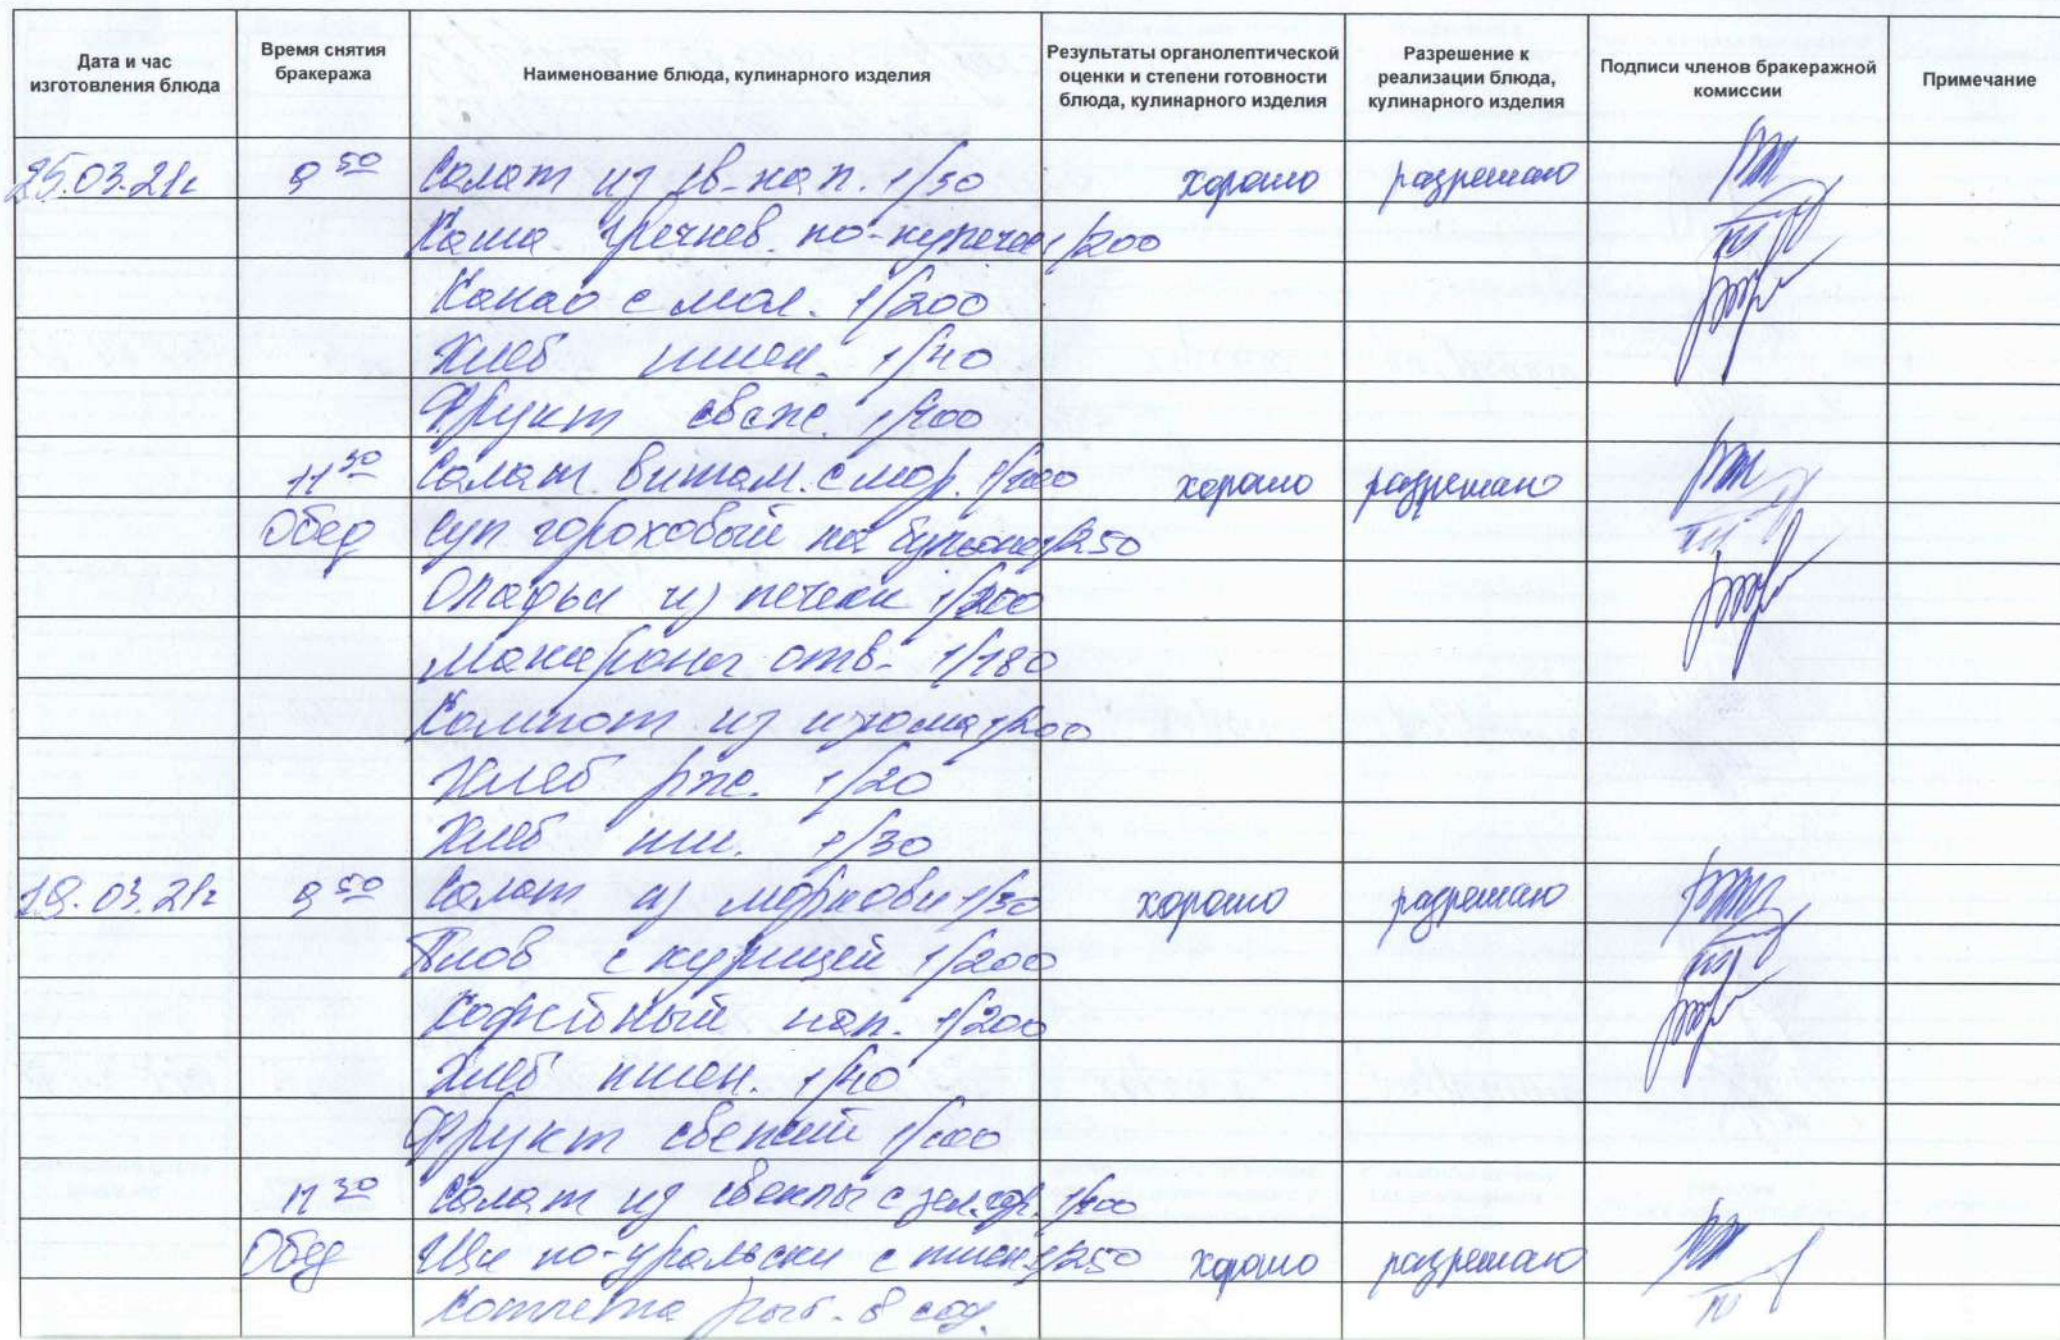 Дата и час изготовления блюда
Время снятия бракеража
Наименование блюда, кулинарного изделия
Результаты органолептической оценки и степени готовности блюда, кулинарного изделия
Разрешение к реализации блюда, кулинарного изделия
Подписи членов бракеражной комиссии
Примечание
25.03.21г 9 50 Салат из кв. кап. 1/50 хорошо разрешаю
Каша гречнев по-купечес 1/200
Какао с мол. 1/200
Хлеб пшен. 1/40
Фрукт свеж. 1/100
11 30 Салат витам. с мор. 1/100 хорошо разрешаю
Обед Суп гороховый на бульоне 1/250
Оладьи из печени 1/100
Макароны отв. 1/180
Компот из изюма 1/200
Хлеб рже. 1/20
Хлеб пш. 1/30
03.21г 9 50 Салат из моркови 1/50 хорошо разрешаю
Плов с курицей 1/200
Кофейный нап. 1/200
Хлеб пшен. 1/40
Фрукт свежий 1/100
11 30 Салат из свеклы с зел. гор. 1/100
Обед Щи по-уральски с пшен. 1/250 хорошо разрешаю
Котлета рыб.